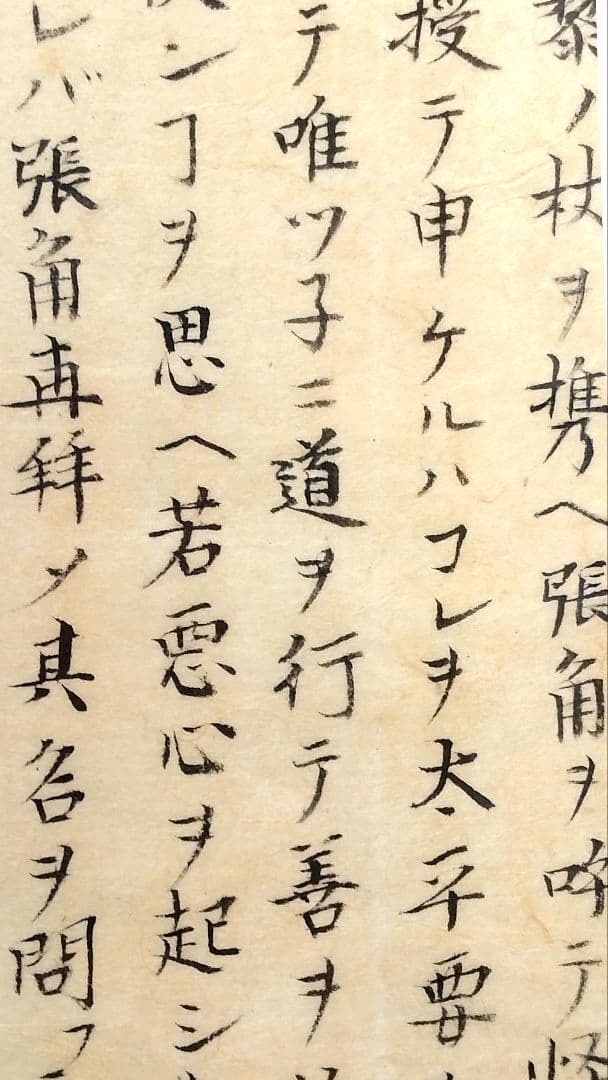 藜ノ杖ヲ携ヘ張角ヲ呼テ
授テ申ケルハコレヲ太平要
テ唯ツ子ニ道ヲ行テ善ヲ
ンヿヲ思ヘ若悪心ヲ起シ
レバ張角再拜メ其名ヲ問フ